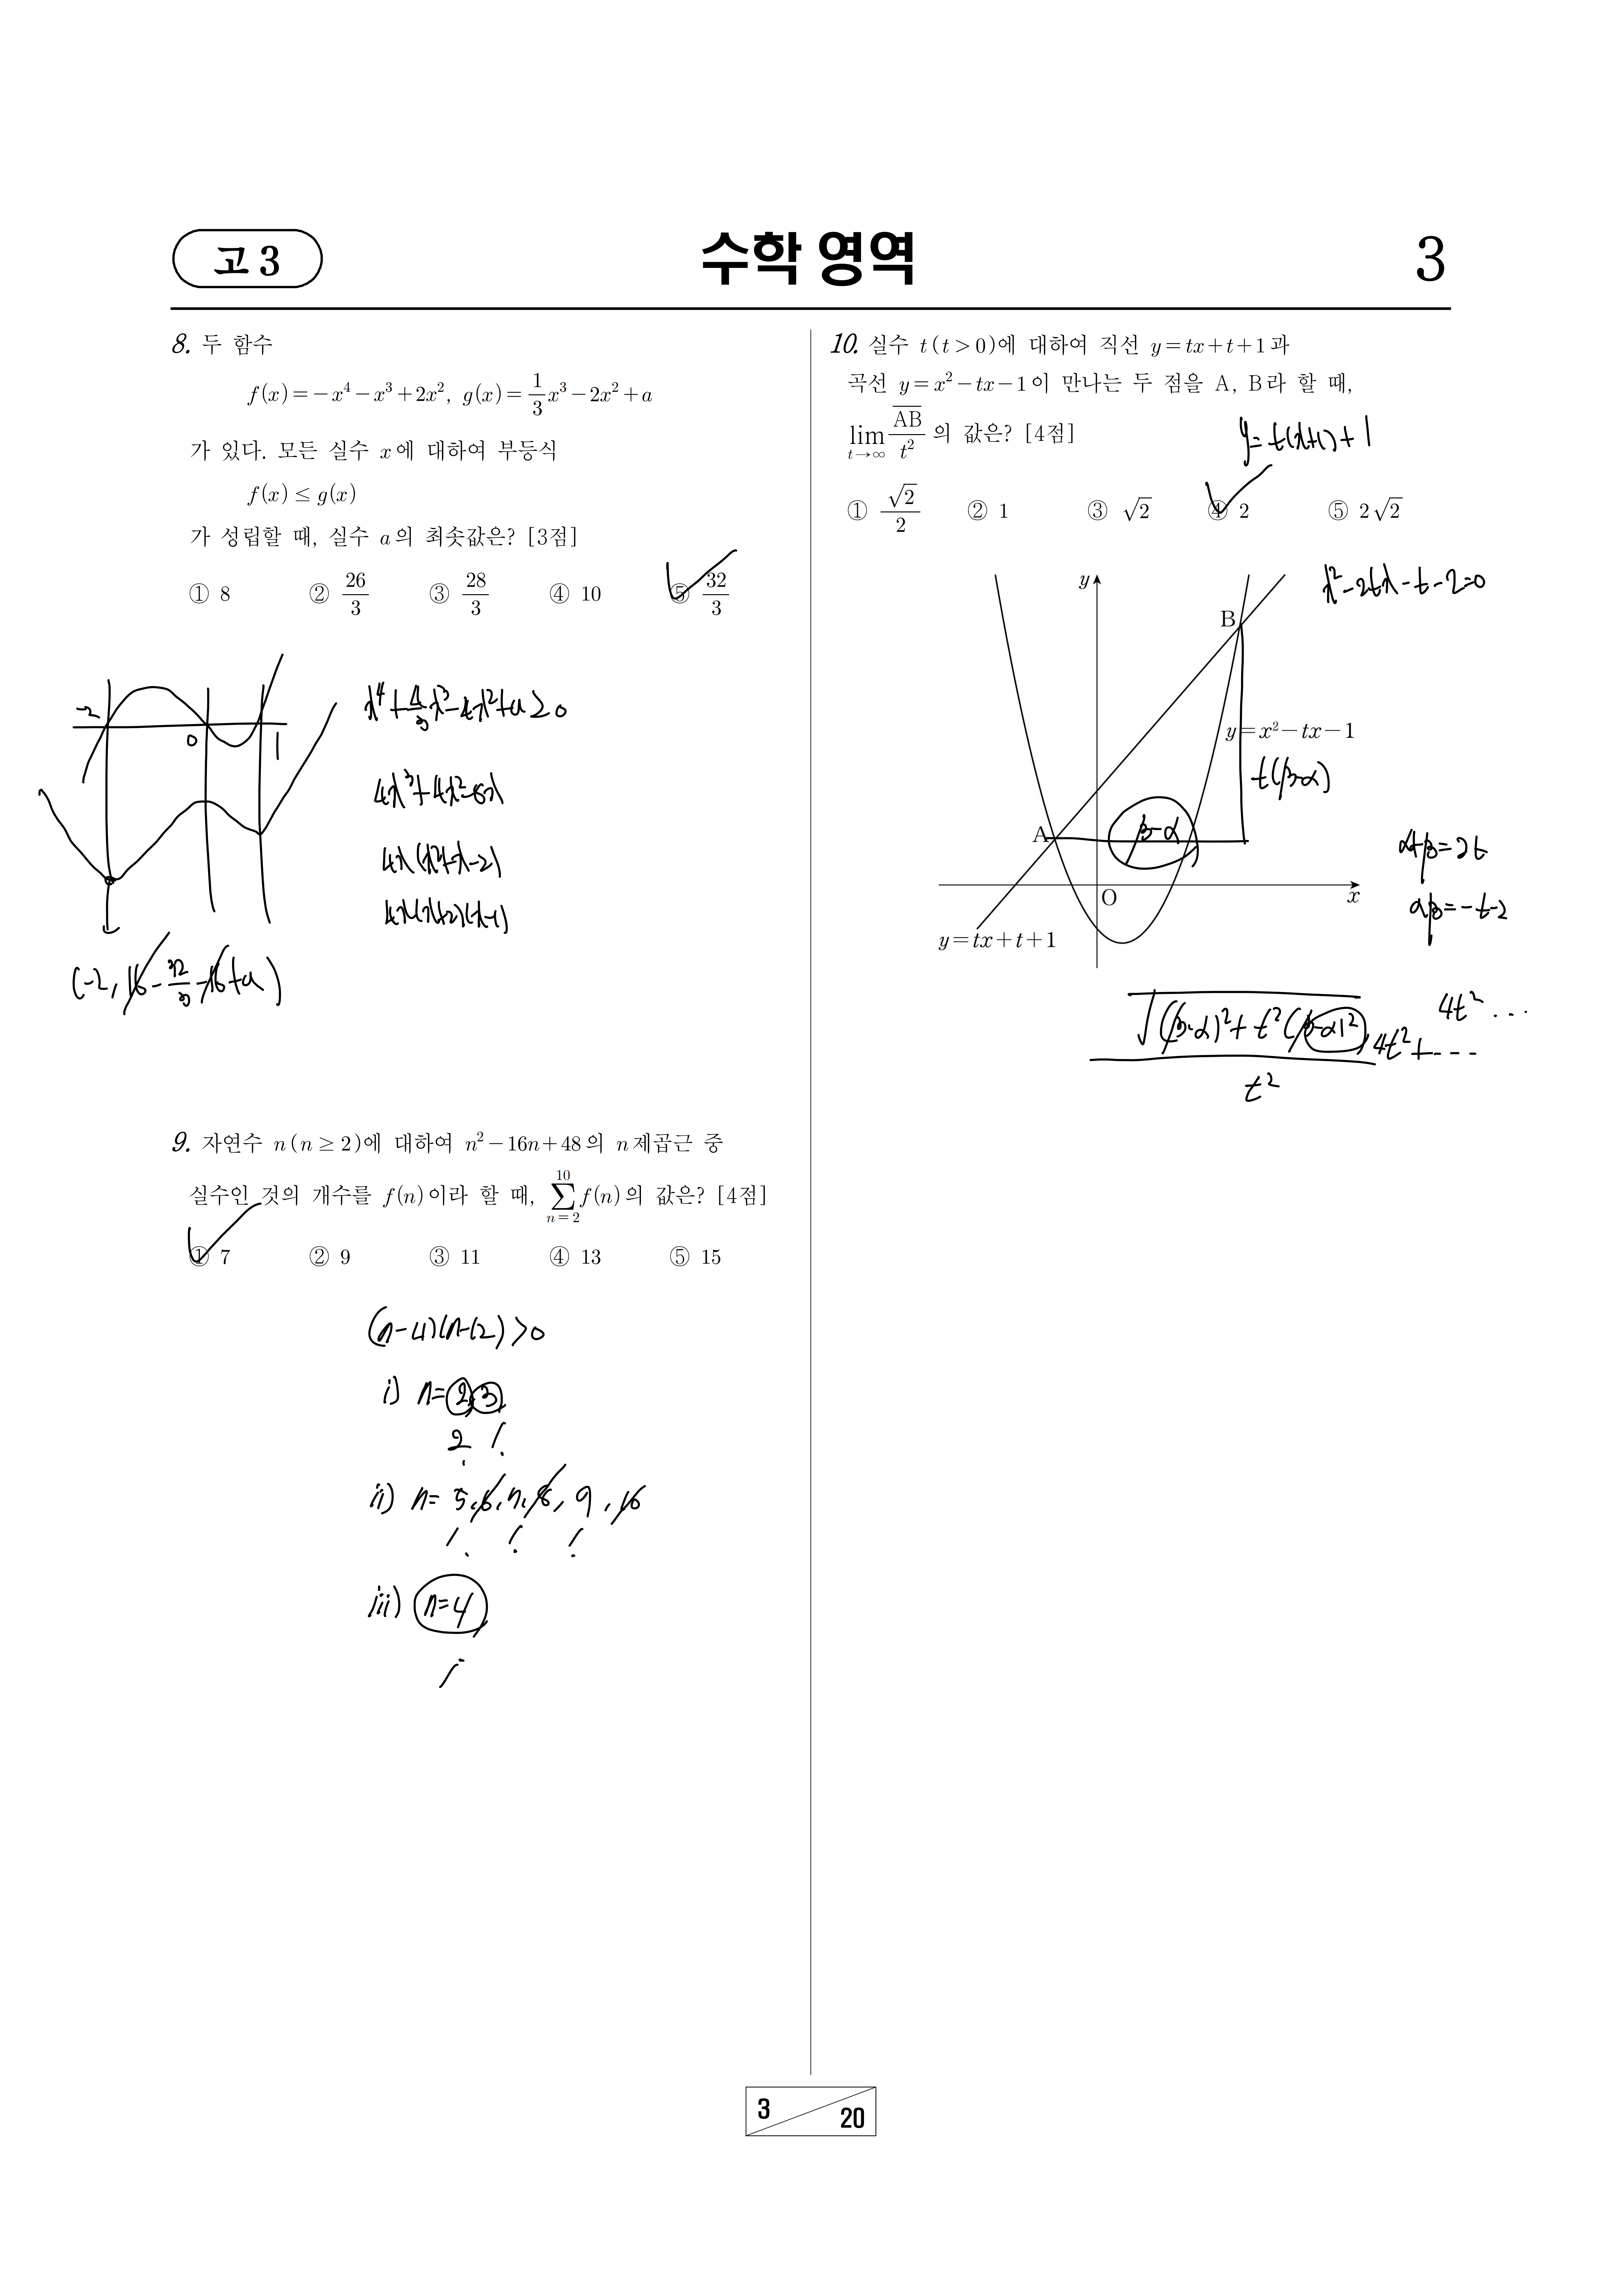 고 3
수학 영역
3
8. 두 함수
f(x)=-x⁴-x³+2x², g(x)=1/3x³-2x²+a
가 있다. 모든 실수 x에 대하여 부등식
f(x)≤g(x)
가 성립할 때, 실수 a의 최솟값은? [3점]
① 8 ② 26/3 ③ 28/3 ④ 10 ⑤ 32/3
-2
0
1
x⁴+4/3x³-4x²+a≥0
4x³+4x²-8x
4x(x²+x-2)
4x(x+2)(x-1)
(-2, 16-32/3-16+a)
9. 자연수 n(n≥2)에 대하여 n²-16n+48의 n제곱근 중
실수인 것의 개수를 f(n)이라 할 때, ∑(n=2→10) f(n)의 값은? [4점]
① 7 ② 9 ③ 11 ④ 13 ⑤ 15
(n-4)(n-12)>0
i) n=2,3
2 1
ii) n=5,6,7,8,9,10
1 1 1
iii) n=4
1
10. 실수 t(t>0)에 대하여 직선 y=tx+t+1과
곡선 y=x²-tx-1이 만나는 두 점을 A, B라 할 때,
lim(t→∞) AB/t²의 값은? [4점]
y=t(x+1)+1
① √2/2 ② 1 ③ √2 ④ 2 ⑤ 2√2
x²-2tx-t-2=0
y
B
y=x²-tx-1
t(β-α)
A
β-α
α+β=2t
αβ=-t-2
O
x
y=tx+t+1
√(β-α)²+t²(β-α)²
4t²...
4t²+---
t²
3
20